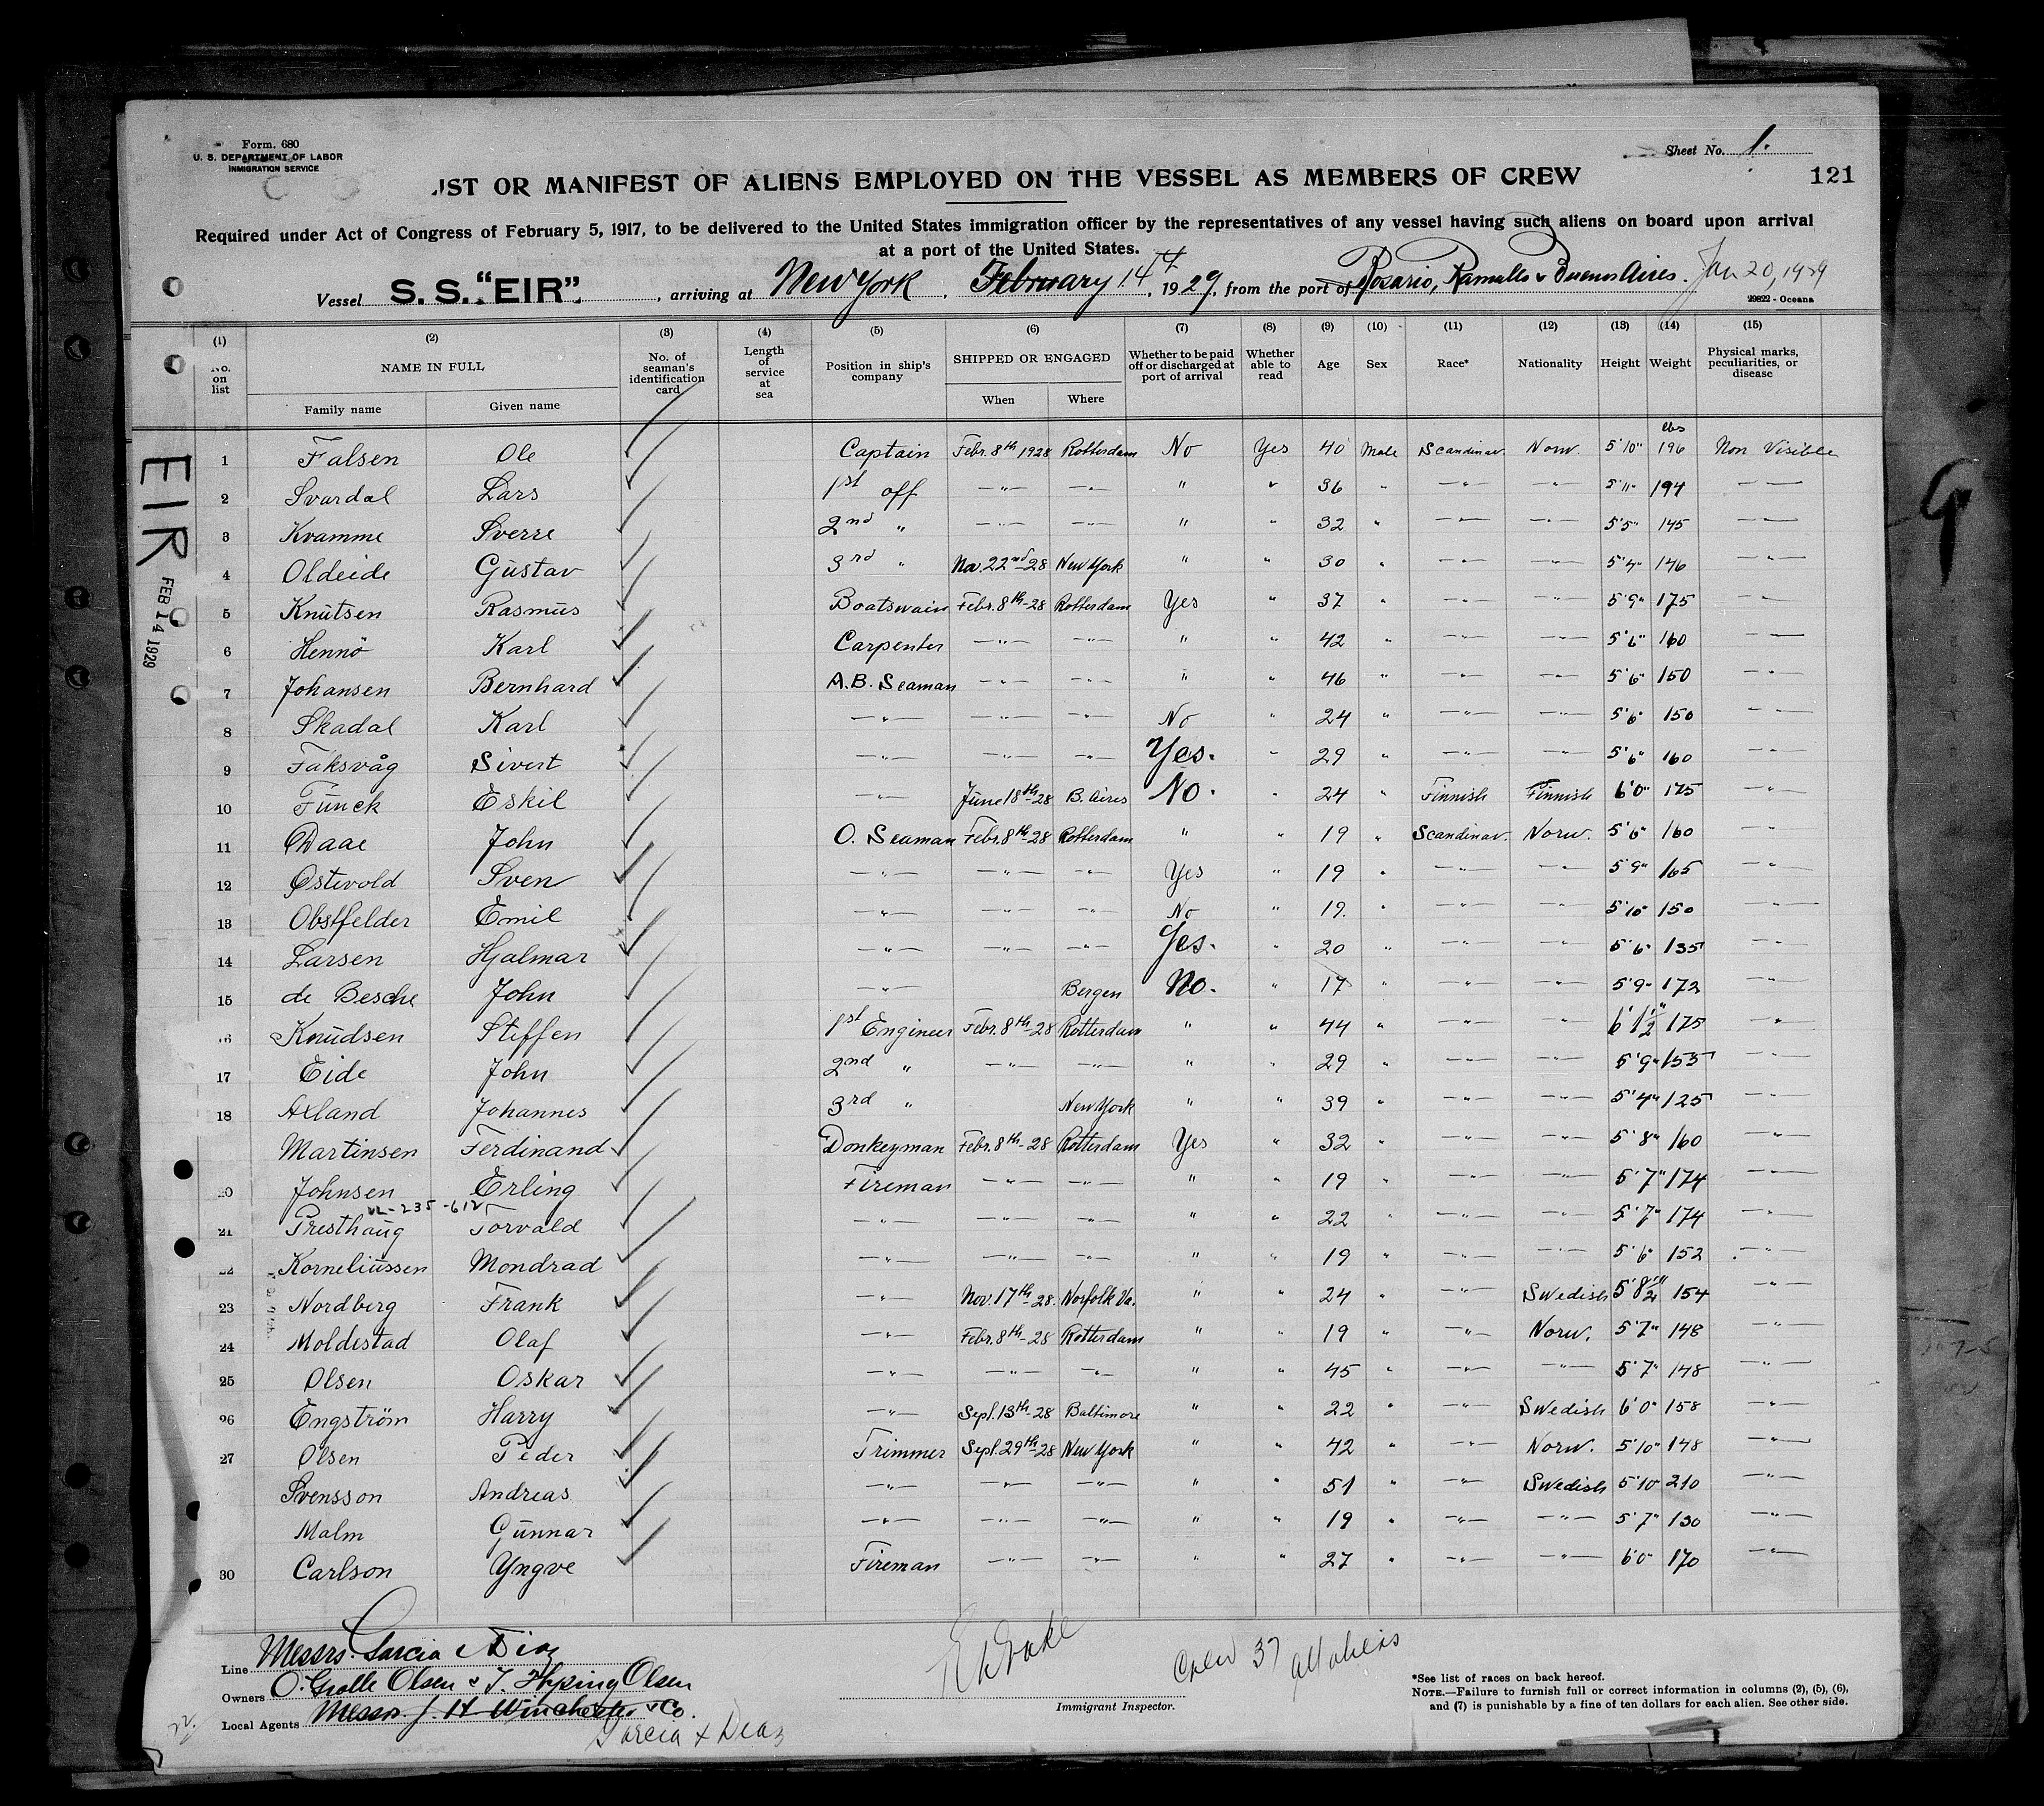 Form. 680
U. S. DEPARTMENT OF LABOR
INMIGRATION SERVICE
Sheet No. 1.
IST OR MANIFEST OF ALIENS EMPLOYED ON THE VESSEL AS MEMBERS OF CREW
121
Required under Act of Congress of February 5, 1917, to be delivered to the United States immigration officer by the representatives of any vessel having such aliens on board upon arrival
at a port of the United States.
Vessel S. S. "EIR", arriving at New York, February 14th, 1929, from the port of Rosario, Ramallo & Buenos Aires. Jan 20, 1929
29822 - Oceana
(1) (2) (3) (4) (5) (6) (7) (8) (9) (10) (11) (12) (13) (14) (15)
No. on list NAME IN FULL No. of seaman's identification card Length of service at sea Position in ship's company SHIPPED OR ENGAGED Whether to be paid off or discharged at port of arrival Whether able to read Age Sex Race* Nationality Height Weight Physical marks, peculiarities, or disease
Family name Given name When Where
lbs
EIR
FEB 14 1929
G
1 Falsen Ole Captain Febr. 8th 1928 Rotterdam No Yes 40 Male Scandinav. Norw. 5'10" 196 Non Visible
2 Svardal Lars 1st off —"— —"— " " 36 " —"— —"— 5'11" 194 —"—
3 Kvamme Sverre 2nd " —"— —"— " " 32 " —"— —"— 5'5" 145 —"—
4 Oldeide Gustav 3rd " Nov. 22nd-28 New York " " 30 " —"— —"— 5'4" 146 —"—
5 Knutsen Rasmus Boatswain Febr. 8th-28 Rotterdam Yes " 37 " —"— —"— 5'9" 175 —"—
6 Hennö Karl Carpenter —"— —"— " " 42 " —"— —"— 5'6" 160 —"—
7 Johansen Bernhard A.B. Seaman —"— —"— " " 46 " —"— —"— 5'6" 150 —"—
8 Skadal Karl —"— —"— —"— No " 24 " —"— —"— 5'6" 150 —"—
9 Faksvåg Sivert —"— —"— —"— Yes. " 29 " —"— —"— 5'6" 160 —"—
10 Funck Eskil —"— June 18th-28 B. Aires No. " 24 " Finnish Finnish 6'0" 175 —"—
11 Daae John O. Seaman Febr. 8th-28 Rotterdam " " 19 " Scandinav. Norw. 5'6" 160 —"—
12 Østevold Sven —"— —"— —"— Yes " 19 " —"— —"— 5'9" 165 —"—
13 Obstfelder Emil —"— —"— —"— No " 19. " —"— —"— 5'10" 150 —"—
14 Larsen Hjalmar —"— —"— —"— Yes. " 20 " —"— —"— 5'6" 135 —"—
15 de Besche John —"— Bergen No. " 17 " —"— —"— 5'9" 172 —"—
16 Knudsen Steffen 1st Engineer Febr. 8th-28 Rotterdam " " 44 " —"— —"— 6'1½" 175 —"—
17 Eide John 2nd " —"— —"— " " 29 " —"— —"— 5'9" 155 —"—
18 Axland Johannes 3rd " New York " " 39 " —"— —"— 5'4" 125 —"—
Martinsen Ferdinand Donkeyman Febr. 8th-28 Rotterdam Yes " 32 " —"— —"— 5'8" 160 —"—
20 Johnsen Erling Fireman —"— —"— " " 19 " —"— —"— 5'7" 174 —"—
VL-235-612
21 Presthaug Torvald —"— —"— —"— " " 22 " —"— —"— 5'7" 174 —"—
22 Korneliussen Mondrad —"— —"— —"— " " 19 " —"— —"— 5'6" 152 —"—
23 Nordberg Frank —"— Nov. 17th-28. Norfolk Va. " " 24 " —"— Swedish 5'8½" 154 —"—
24 Moldestad Olaf —"— Febr. 8th-28 Rotterdam " " 19 " —"— Norw. 5'7" 148 —"—
25 Olsen Oskar —"— —"— —"— " " 45 " —"— —"— 5'7" 148 —"—
26 Engström Harry —"— Sept. 13th-28 Baltimore " " 22 " —"— Swedish 6'0" 158 —"—
27 Olsen Peder Trimmer Sept. 29th-28 New York " " 42 " —"— Norw. 5'10" 148 —"—
Svensson Andreas —"— —"— —"— " " 51 " —"— Swedish 5'10 210 —"—
Malm Gunnar —"— —"— —"— " " 19 " —"— —"— 5'7" 130 —"—
30 Carlson Yngve Fireman —"— —"— " " 27 " —"— —"— 6'0" 170 —"—
Line Messrs. Garcia & Diaz
Owners O. Grolle Olsen & T. Hysing Olsen
Local Agents Messrs. J. H Winchester & Co.
Garcia & Diaz
Immigrant Inspector.
Crew 37 all aliens
*See list of races on back hereof.
NOTE.—Failure to furnish full or correct information in columns (2), (5), (6),
and (7) is punishable by a fine of ten dollars for each alien. See other side.